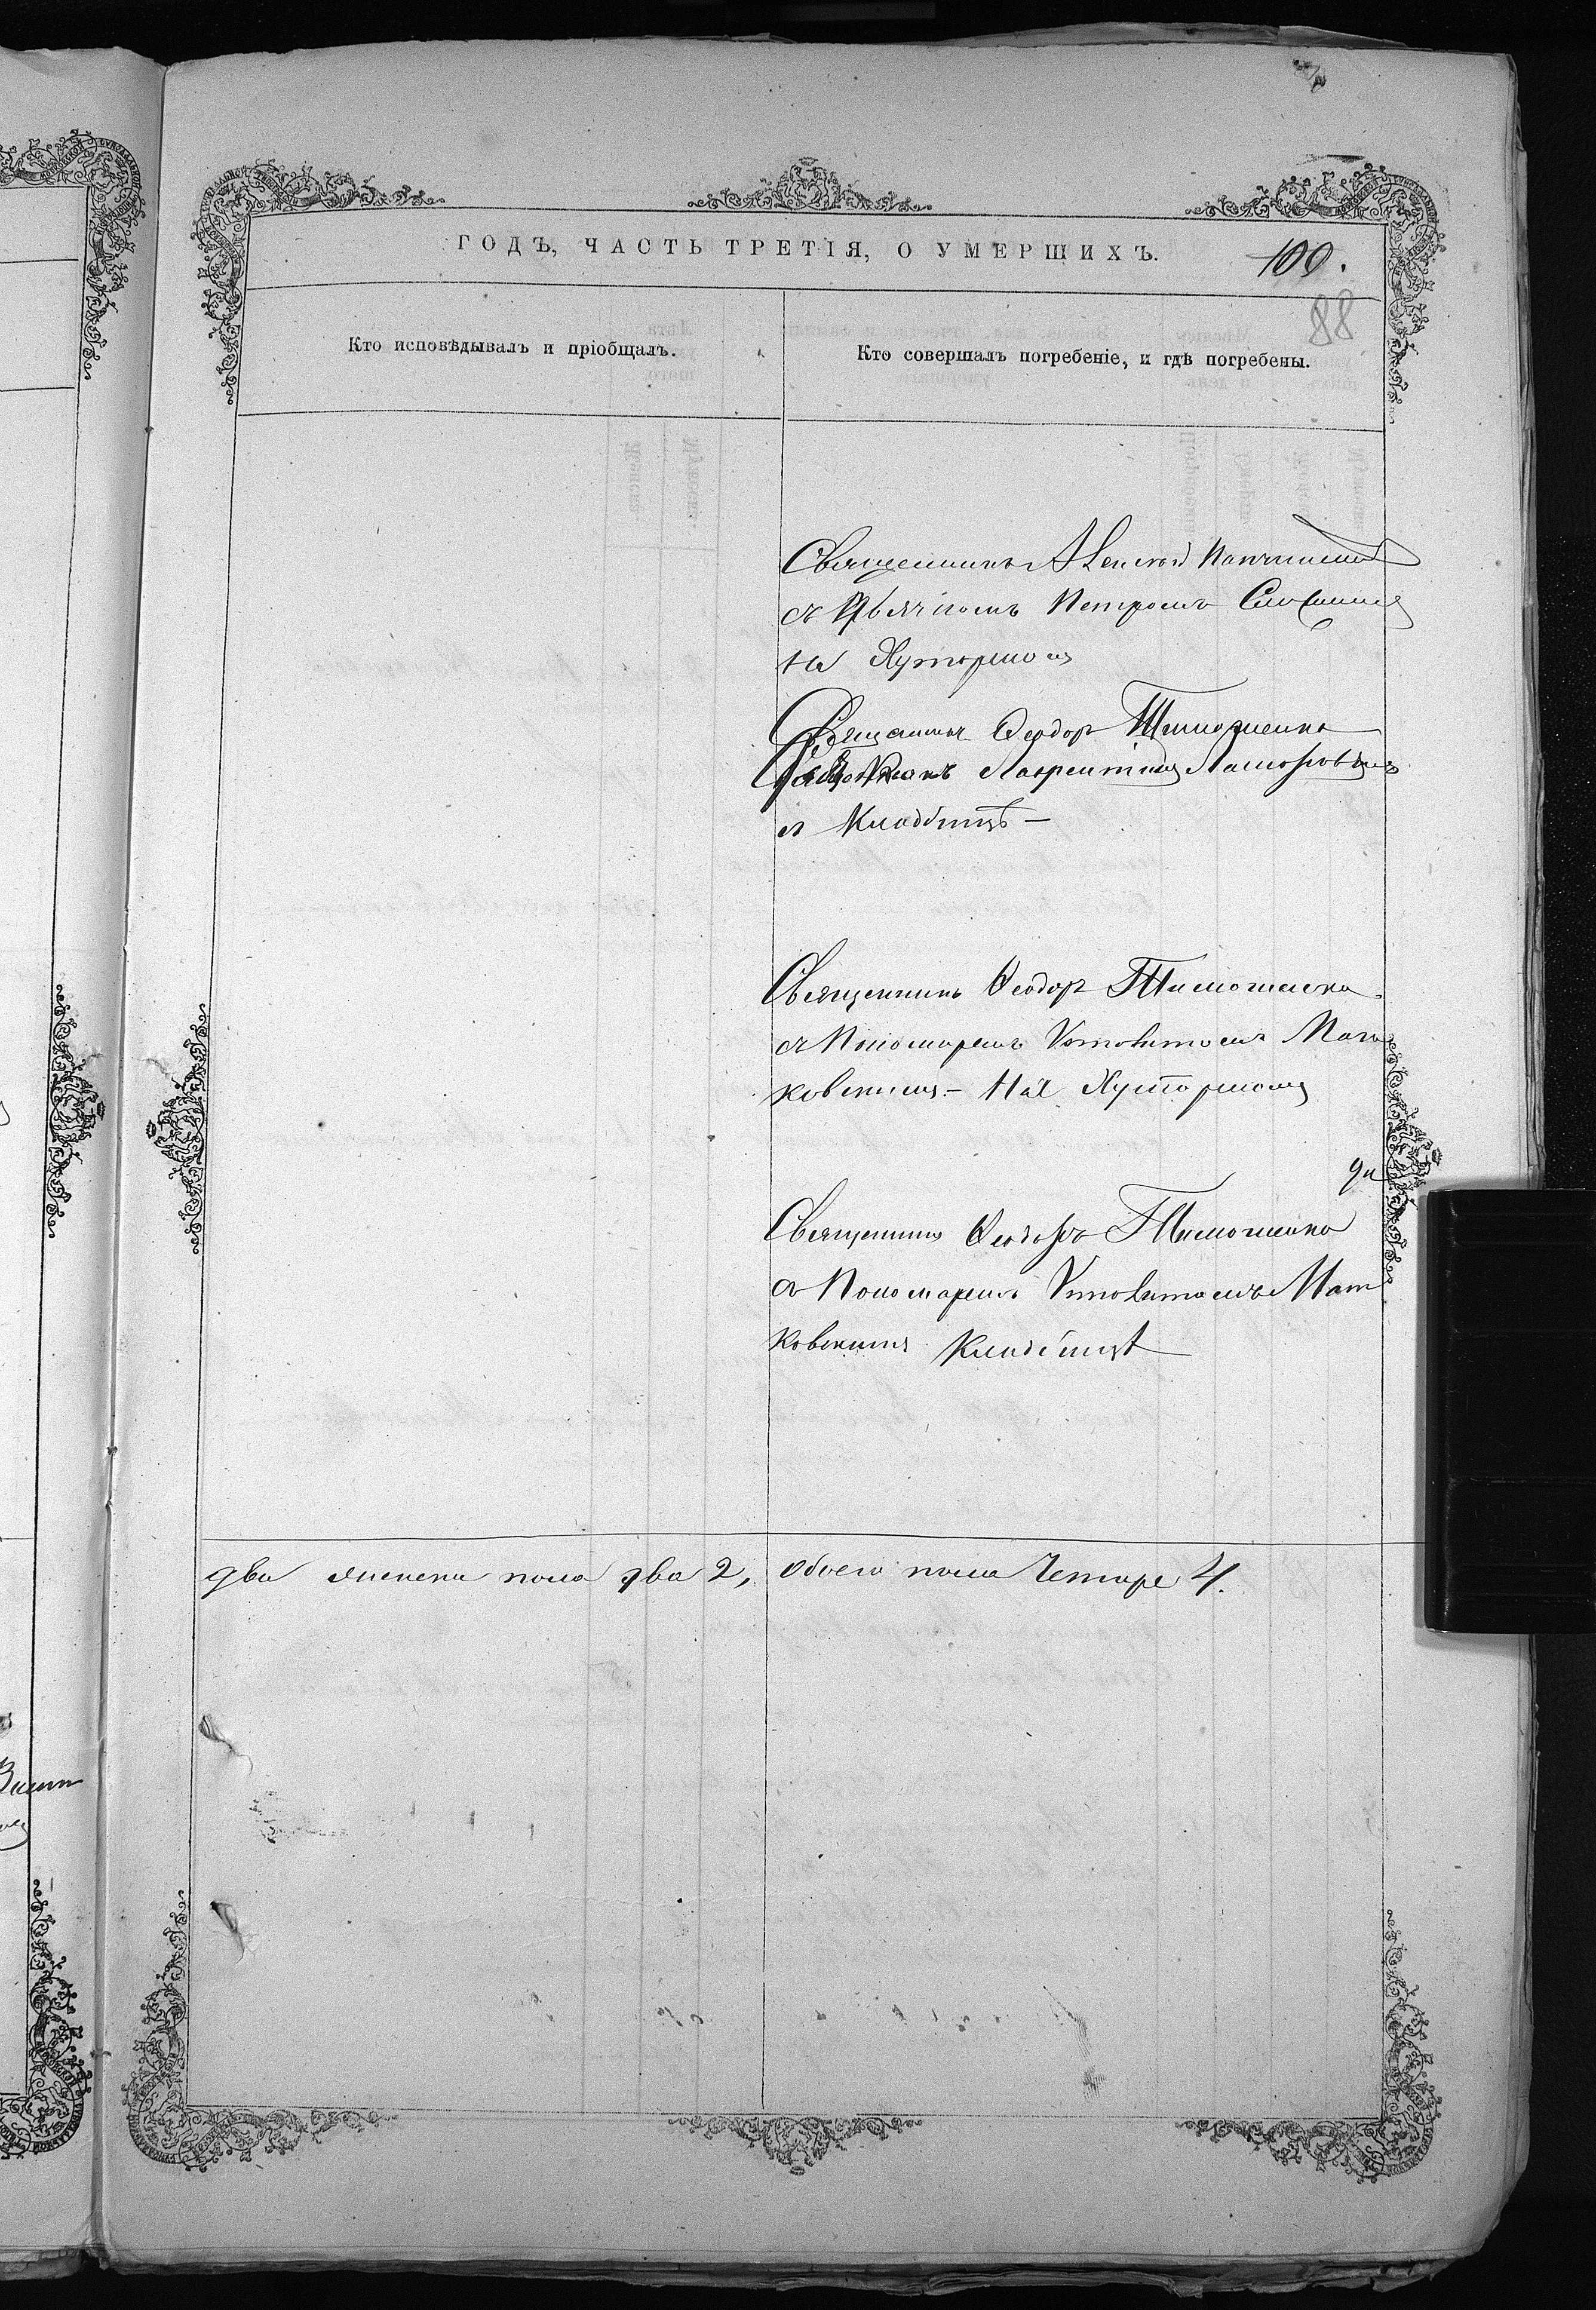 ГОДЪ, ЧАСТЬ ТРЕТІЯ, О УМЕРШИХЪ.
100.
88
Кто исповѣдывалъ и пріобщалъ.
Кто совершалъ погребеніе, и гдѣ погребены.
Священникъ Алексѣй
съ Дьячкомъ Петромъ
на Хуторномъ
Священникъ Феодоръ Тимошенко
Лаврентіемъ
Кладбищѣ —
Священникъ Феодоръ Тимошенко
съ Пономаремъ
ковскимъ — На Хуторномъ
Священникъ Феодоръ Тимошенко
съ Пономаремъ
ковскимъ Кладбищѣ
два женска пола два 2, Обоего пола Четыре 4.